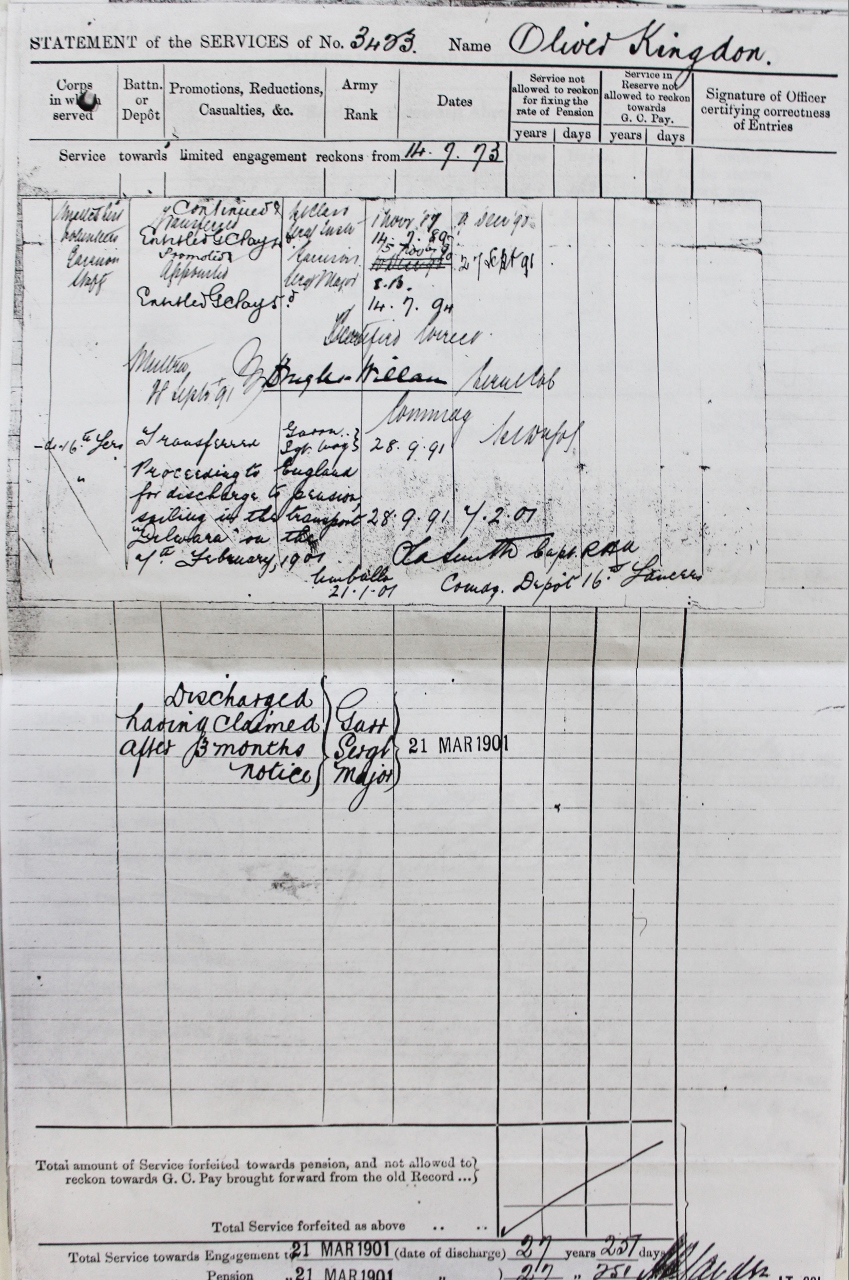 STATEMENT of the SERVICES of No. 3423. Name Oliver Kingdon.
Corps in which served
Battn. or Depôt
Promotions, Reductions, Casualties, &c.
Army Rank
Dates
Service not allowed to reckon for fixing the rate of Pension
years days
Service in Reserve not allowed to reckon towards G. C. Pay.
years days
Signature of Officer certifying correctness of Entries
Service towards limited engagement reckons from 14.7.73
Continued &
Transferred
Volunteers Entitled G C Pay 14.7.89
Garrison Promoted Garrison 27 Sept 91
Staff Appointed Sergt Major
Entitled G C Pay 5d 14.7.94
Certified Correct
28 Sept 91
Commdg
16th Lrs Transferred Garrn. Sgt. Maj 28.9.91
" Proceeding to England
for discharge to pension,
sailing in the transport 28.9.91 7.2.01
"Dilwara" on the
7th February, 1901 Smith Capt. RHA
Umballa Comdg. Depôt 16th Lancers
21.1.01
Discharged
having claimed Garr
after 3 months Sergt 21 MAR 1901
notice Major
Total amount of Service forfeited towards pension, and not allowed to
reckon towards G. C. Pay brought forward from the old Record ...
Total Service forfeited as above .. ..
Total Service towards Engagement to 21 MAR 1901 (date of discharge) 27 years 251 days
Pension " 21 MAR 1901 " 27 " 251